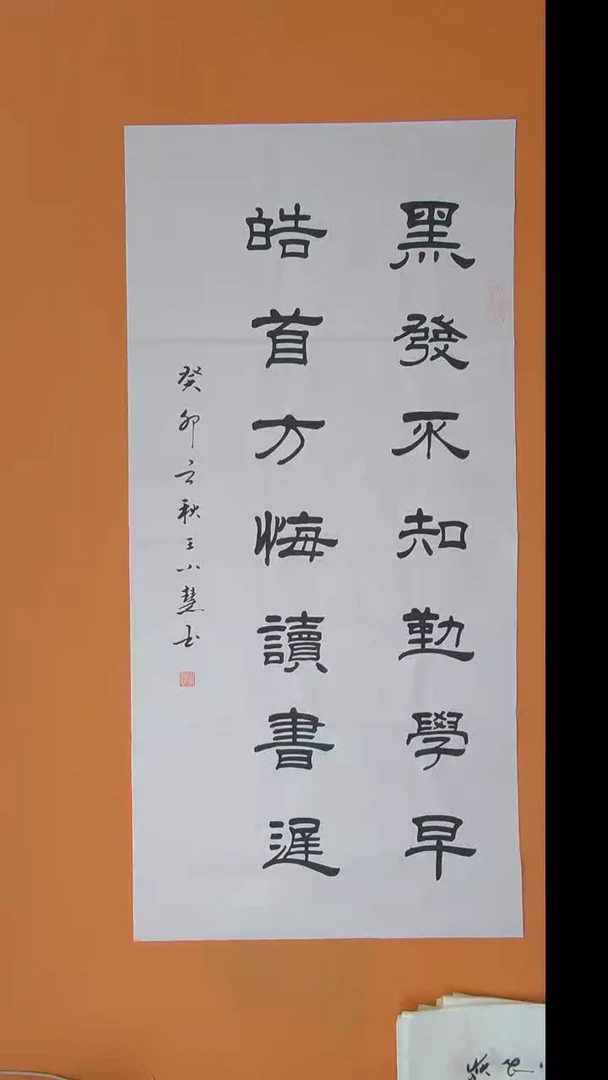 黑發不知勤學早
皓首方悔讀書遲
癸卯立秋王小慧书